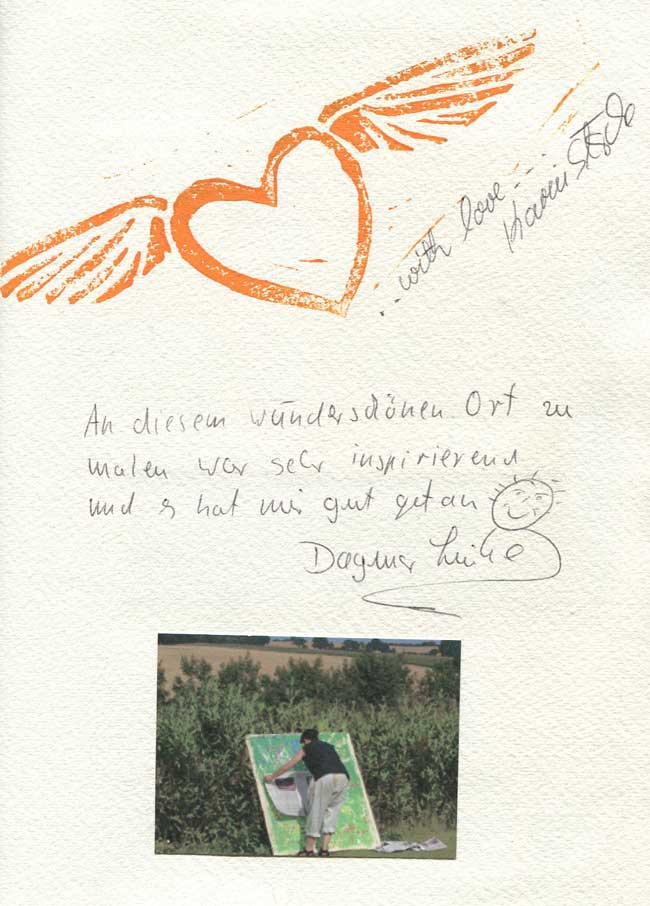 ...with love...
Karin
An diesem wunderschönen Ort zu
malen war sehr inspirierend
und es hat mir gut getan
Dagmar